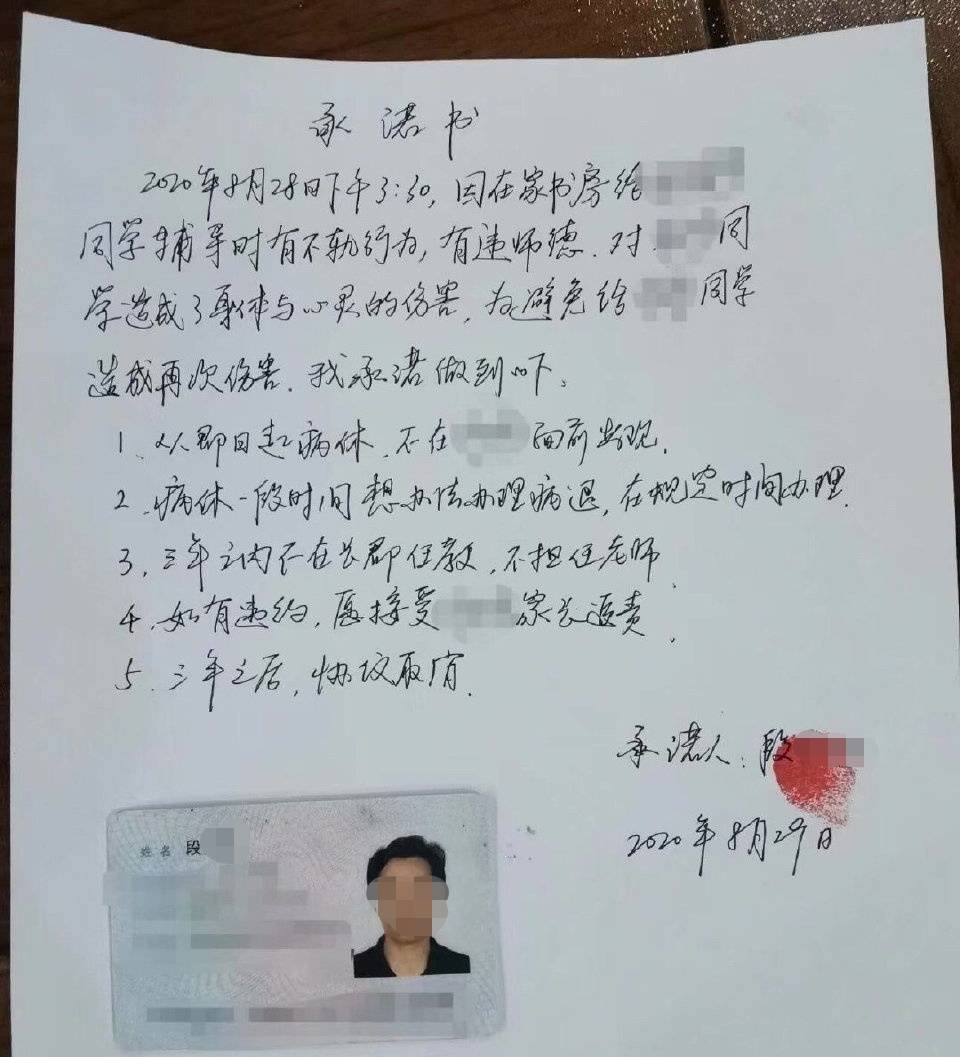 承诺书
2020年8月28日下午3:30，因在家书房给
同学辅导时有不轨行为，有违师德．对 同
学造成了身体与心灵的伤害，为避免给 同学
造成再次伤害．我承诺做到以下：
1、从即日起病休，不在 面前出现．
2、病休一段时间想办法办理病退，在规定时间办理．
3、三年之内不在长郡任教，不担任老师．
4、如有违约，愿接受 家长追责．
5、三年之后，协议取消．
承诺人：段
2020年8月29日
姓名 段